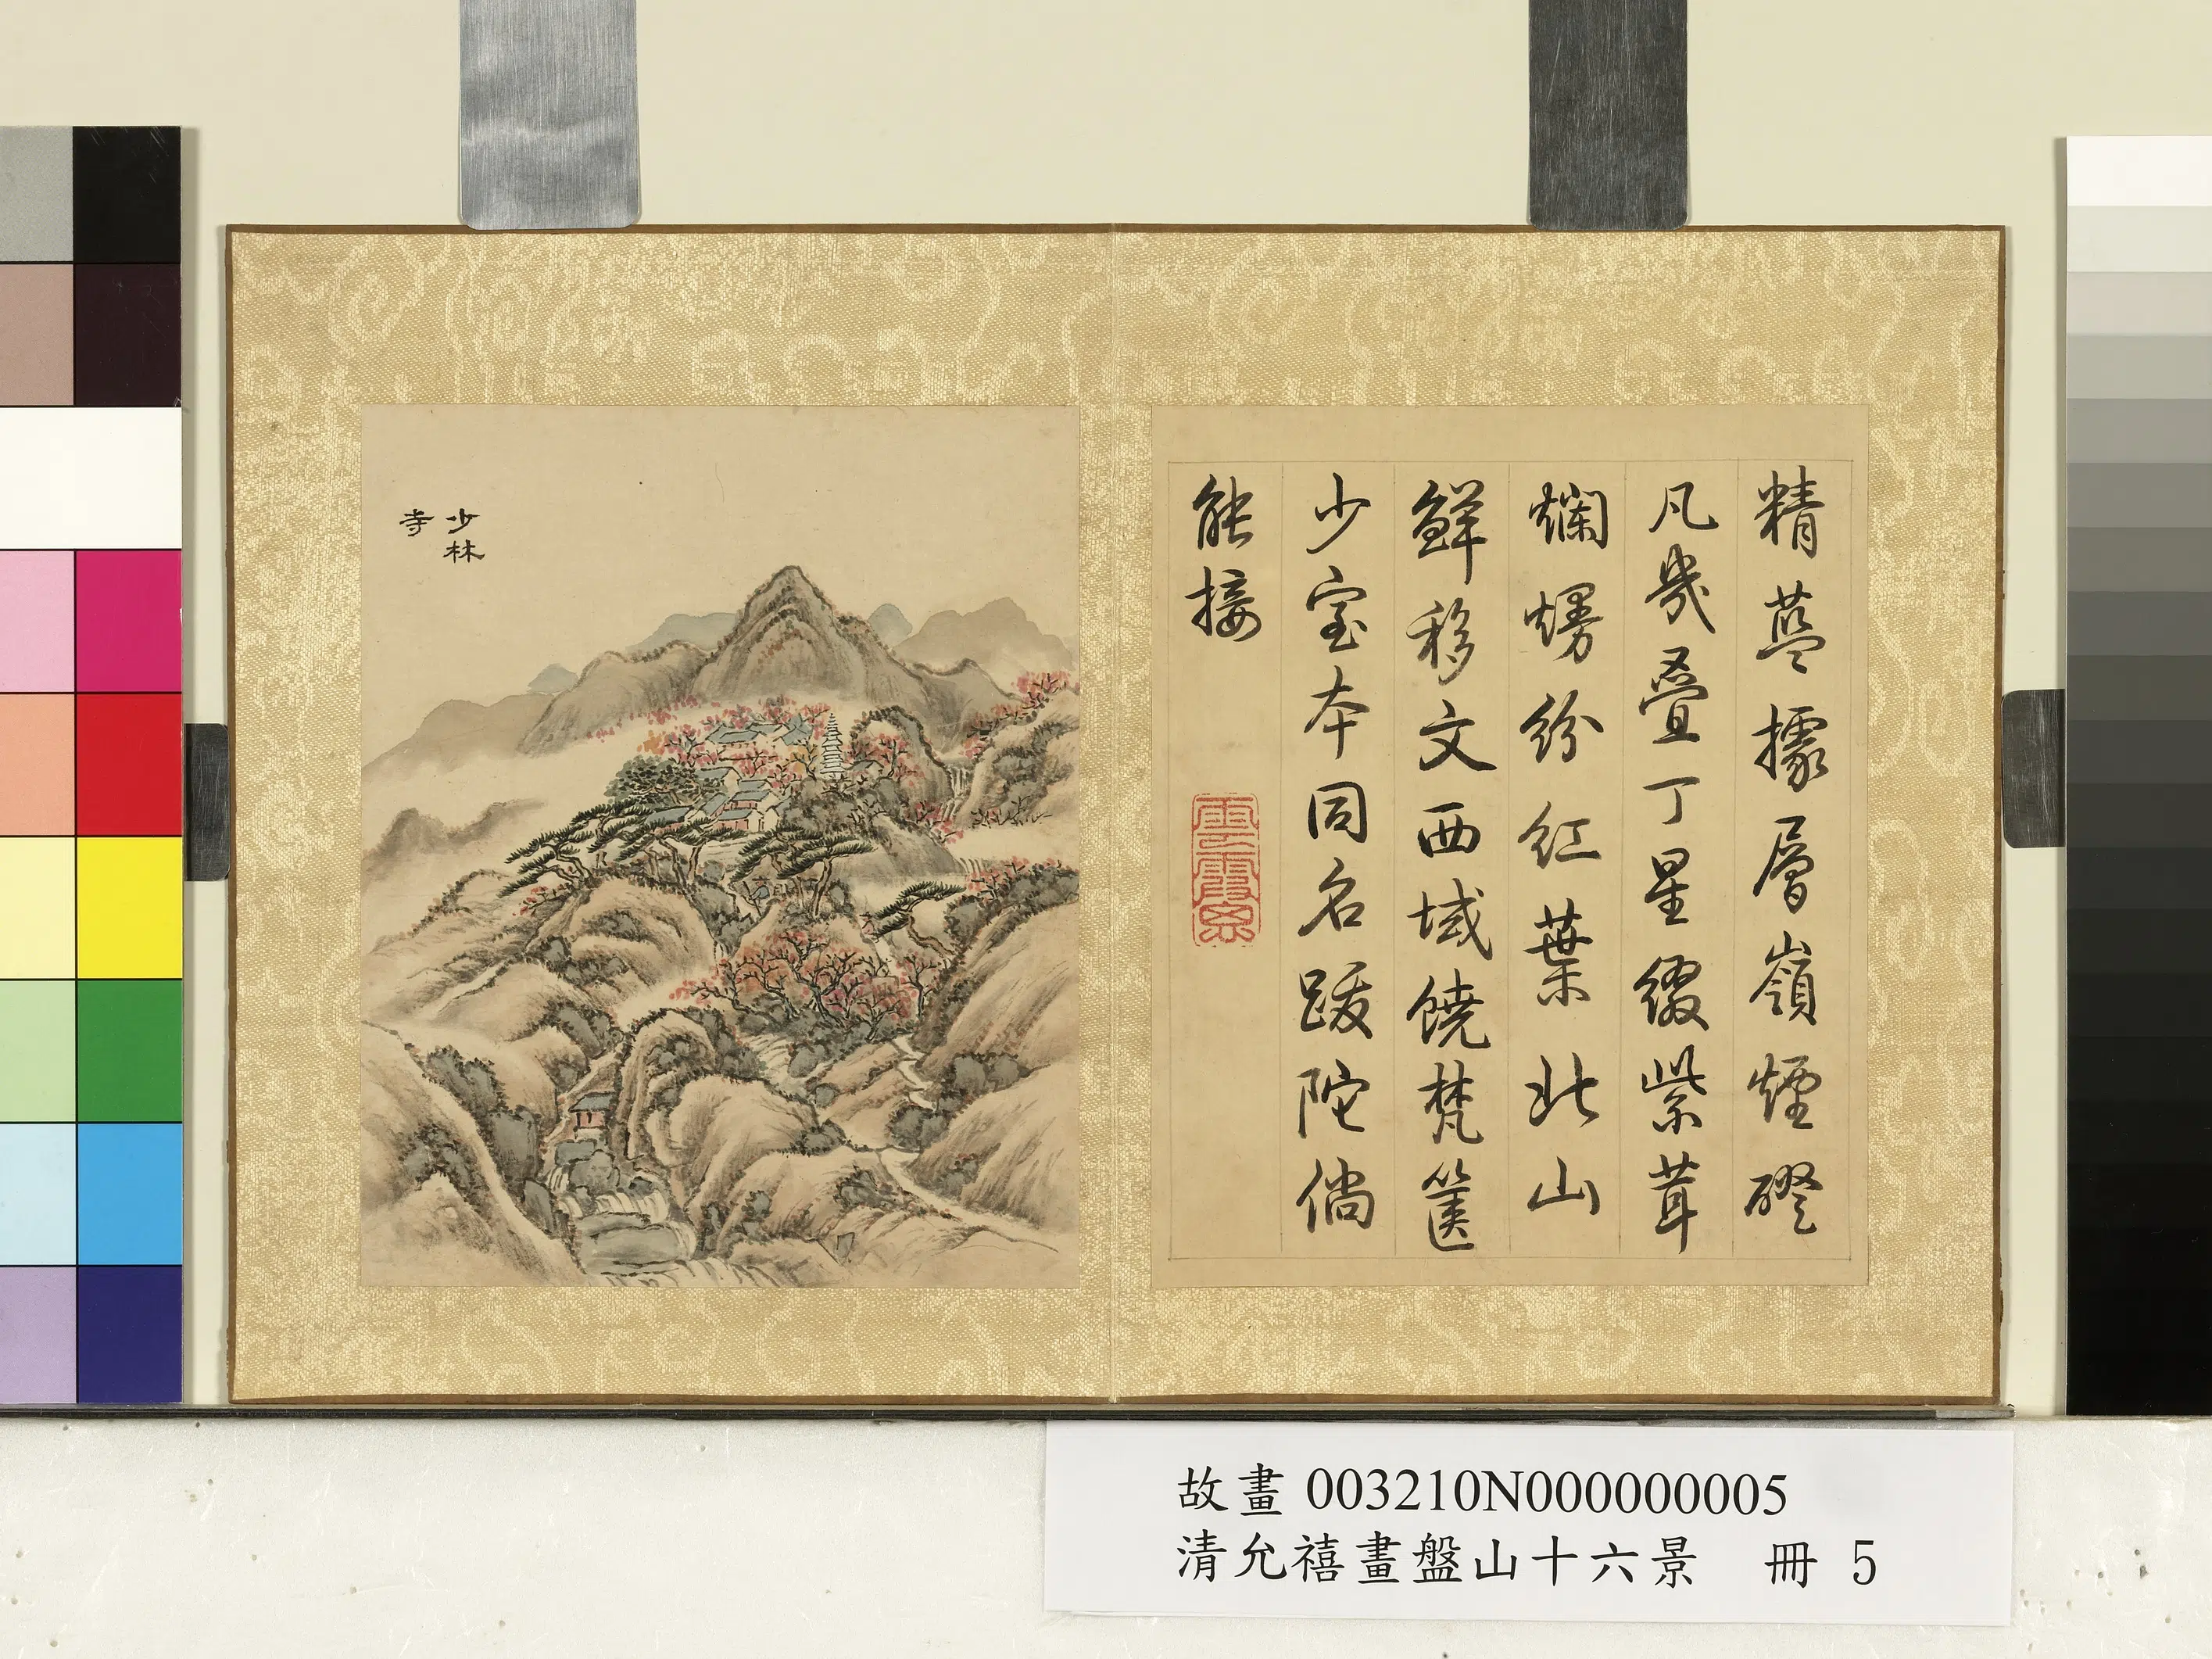 精藍據層嶺煙磴
凡幾疊丁星綴紫茸
爛熳紛紅葉北山
鮮移文西域饒梵篋
少室本同名跋陀倘
能接
雲霞思
少林
寺
故畫 003210N000000005
清允禧畫盤山十六景 冊 5